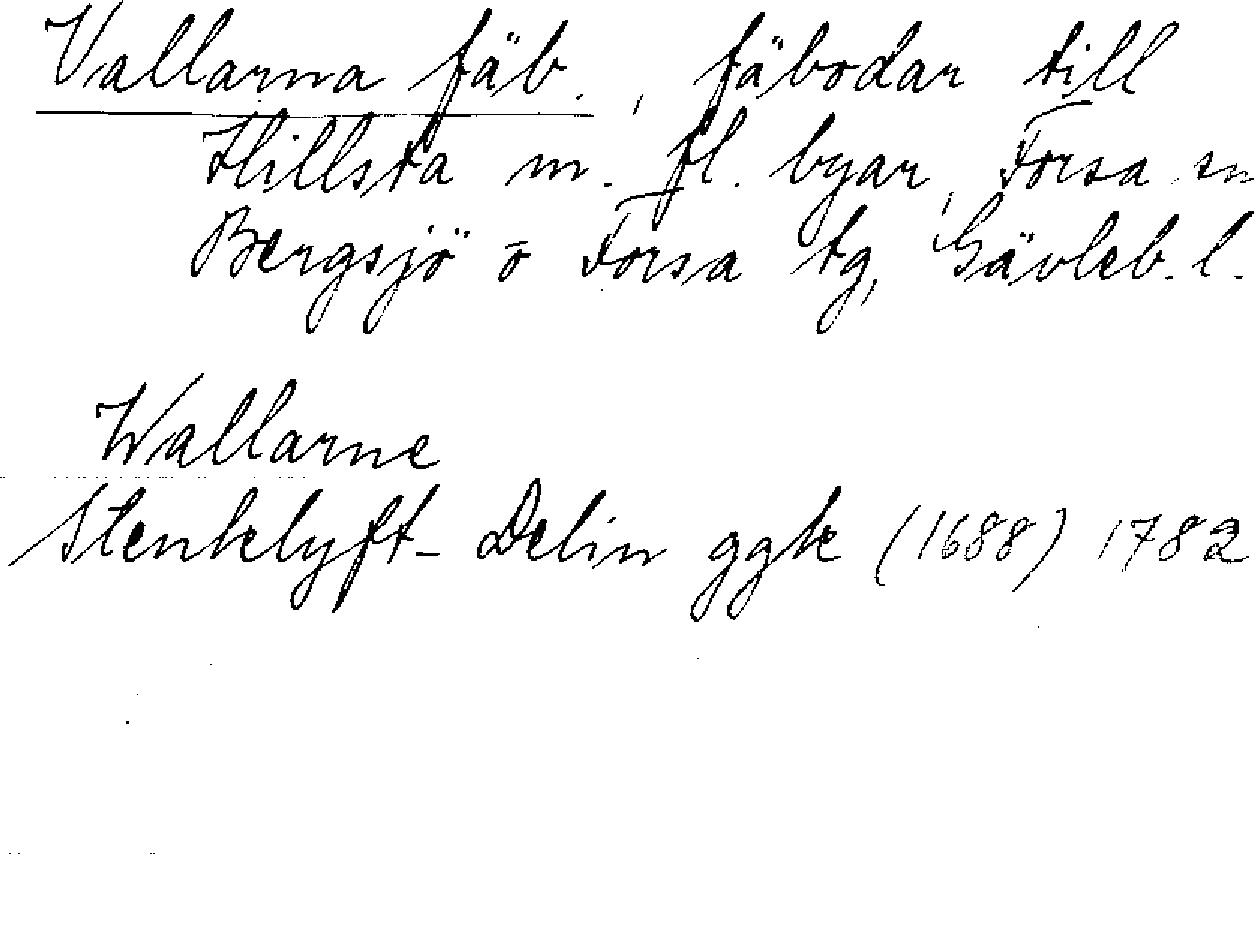 Vallarna fäb., fäbodar till
Hillsta m. fl. byar, Forsa sn
Bergsjö o Forsa tg, Gävleb. l.
Wallarne
Stenklyft- Delin ggk (1688) 1782